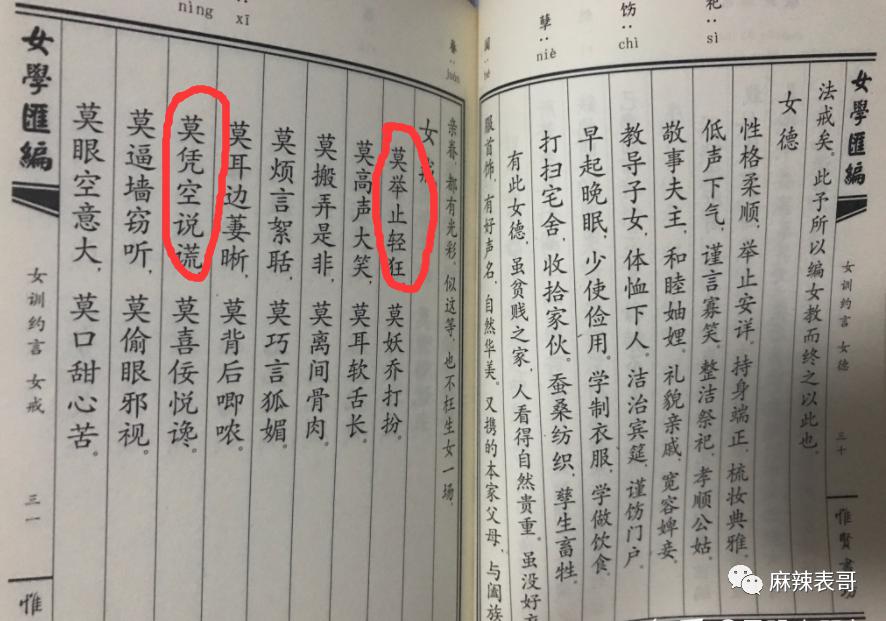 女學匯編
女训约言 女德
三十
惟賢書坊
祀：sì
饬：chì
孽：niè
阖：hé
法戒矣。此予所以编女教而终之以此也。
女德
性格柔顺，举止安详。持身端正，梳妆典雅。
低声下气，谨言寡笑。整洁祭祀，孝顺公姑。
敬事夫主，和睦妯娌。礼貌亲戚，宽容婢妾。
教导子女，体恤下人。洁治宾筵，谨饬门户。
早起晚眠，少使俭用。学制衣服，学做饮食。
打扫宅舍，收拾家伙。蚕桑纺织，孽生畜牲。
有此女德，虽贫贱之家，人看得自然贵重。虽没好
服首饰，有好声名，自然华美。又携的本家父母，与阖族
眷：juàn
nìng xī
亲眷，都有光彩。似这等，也不枉生女一场。
女戒
莫举止轻狂，莫妖乔打扮。
莫高声大笑，莫耳软舌长。
莫搬弄是非，莫离间骨肉。
莫烦言絮聒，莫巧言狐媚。
莫耳边萋晰，莫背后唧哝。
莫凭空说谎，莫喜佞悦谗。
莫逼墙窃听，莫偷眼邪视。
莫眼空意大，莫口甜心苦。
女學匯編
女训约言 女戒
三一
惟
麻辣表哥